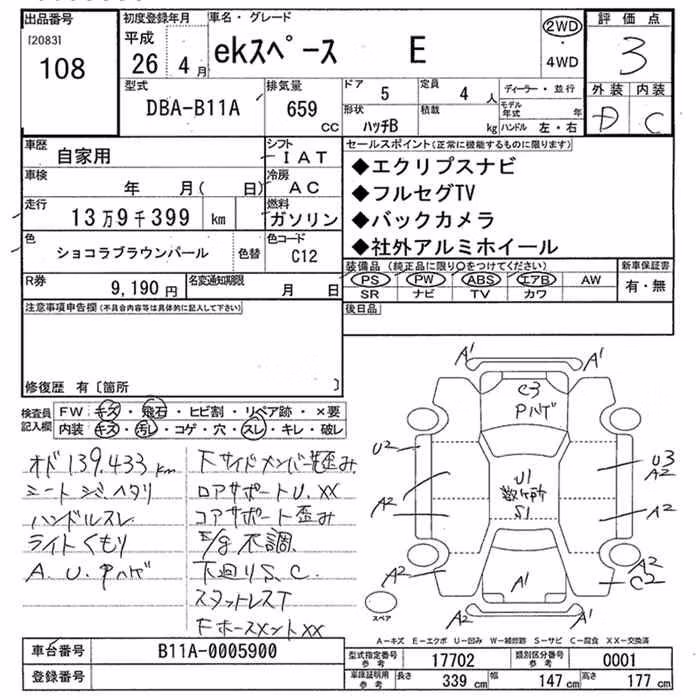 出品番号
[2083]
108
初度登録年月
平成
26年 4月
車名・グレード
ekスペース E
2WD
4WD
評価点
3
外装 内装
D C
型式
DBA-B11A
排気量
659 CC
ドア 5
定員 4 人
形状 ハッチB
積載 kg
ディーラー・並行
モデル年式 年
ハンドル 左・右
車歴
自家用
シフト
IAT
車検
年 月( 日)
冷房
AC
走行
13万9千399 km
燃料
ガソリン
色
ショコラブラウンパール
色替
色コード
C12
R券
9,190 円
名変通知期限
月 日
セールスポイント(正常に機能するものに限ります)
◆エクリプスナビ
◆フルセグTV
◆バックカメラ
◆社外アルミホイール
装備品 (純正品に限り○をつけてください)
PS PW ABS エアB AW
SR ナビ TV カワ
新車保証書
有・無
後日品
注意事項申告欄(不具合内容等は具体的に記入して下さい)
修復歴 有〔箇所 〕
検査員記入欄
FW キズ・飛石・ヒビ割・リペア跡・×要
内装 キズ・汚レ・コゲ・穴・スレ・キレ・破レ
オド139,433km
シートシミ、ヘタリ
ハンドルスレ
ライトくもり
A.U.Pハゲ
Fサイドメンバー歪み
ロアサポートU.XX
コアサポート歪み
E/g不調
下廻りS.C.
スタットレスT
Fホースメントxx
A1 A1
C3
Pハゲ
U2
U3
A2
A2
A2
U1
数ヶ所
S1
A2
A2
A2
C2
A1
A2 A2
スペア
A-キズ E-エクボ U-凹み W-補修跡 S-サビ C-腐食 XX-交換済
車台番号
B11A-0005900
登録番号
型式指定番号 参考
17702
類別区分番号 参考
0001
車庫証明用 参考
長さ 339 cm
幅 147 cm
高さ 177 cm